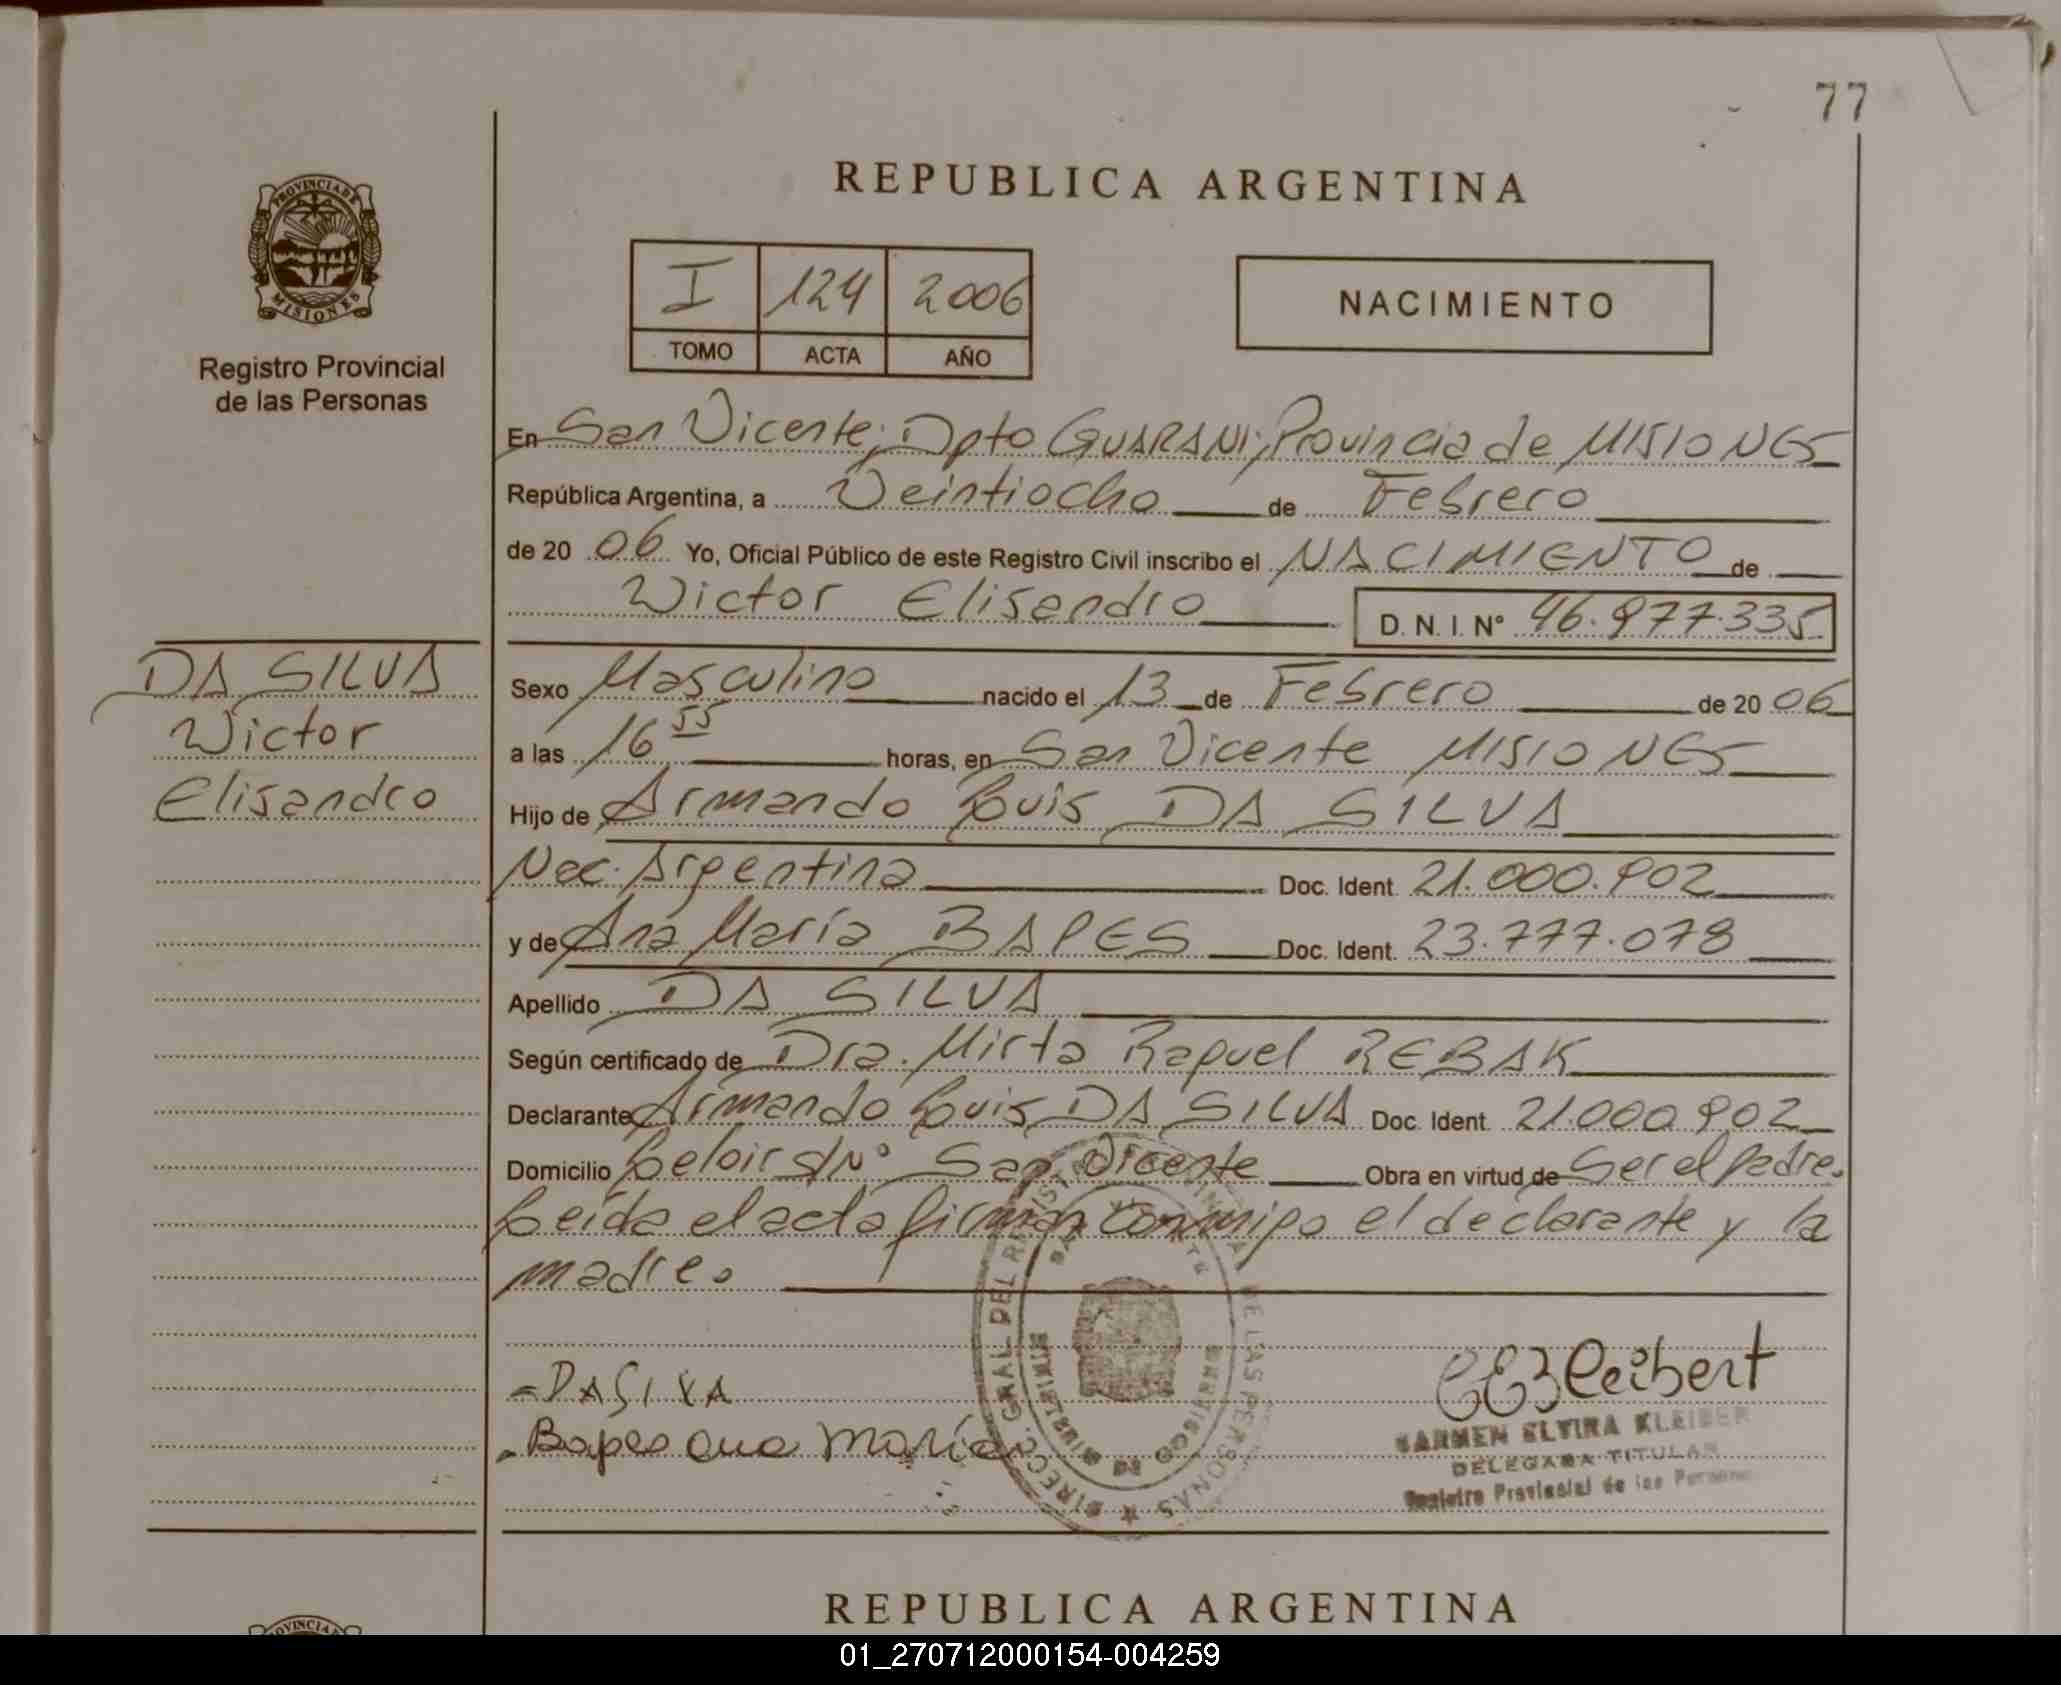 77
REPUBLICA ARGENTINA
PROVINCIA DE
MISIONES
Registro Provincial
de las Personas
I 124 2006
TOMO ACTA AÑO
NACIMIENTO
En San Vicente; Dpto GUARANI; Provincia de MISIONES
República Argentina, a Veintiocho de Febrero
de 20 06 Yo, Oficial Público de este Registro Civil inscribo el NACIMIENTO de
Wictor Elisandro D.N.I.N° 46.977.335
DA SILVA
Wictor
Elisandro
Sexo Masculino nacido el 13 de Febrero de 20 06
a las 16 55 horas, en San Vicente MISIONES
Hijo de Armando Luis DA SILVA
Nac. Argentina Doc. Ident. 21.000.902
y de Ana María BAPES Doc. Ident. 23.777.078
Apellido DA SILVA
Según certificado de Dra. Mirta Raquel REBAK
Declarante Armando Luis DA SILVA Doc. Ident. 21.000.902
Domicilio Leloir S/N° San Vicente Obra en virtud de Ser el padre.
Leída el acta firman conmigo el declarante y la
madre.
DIRECC. GRAL. DEL REGISTRO PROVINCIAL DE LAS PERSONAS
- DA SILVA
- Bapes Ana María
CARMEN ELVIRA KLEIBER
DELEGADA TITULAR
Registro Provincial de las Personas
REPUBLICA ARGENTINA
01_270712000154-004259